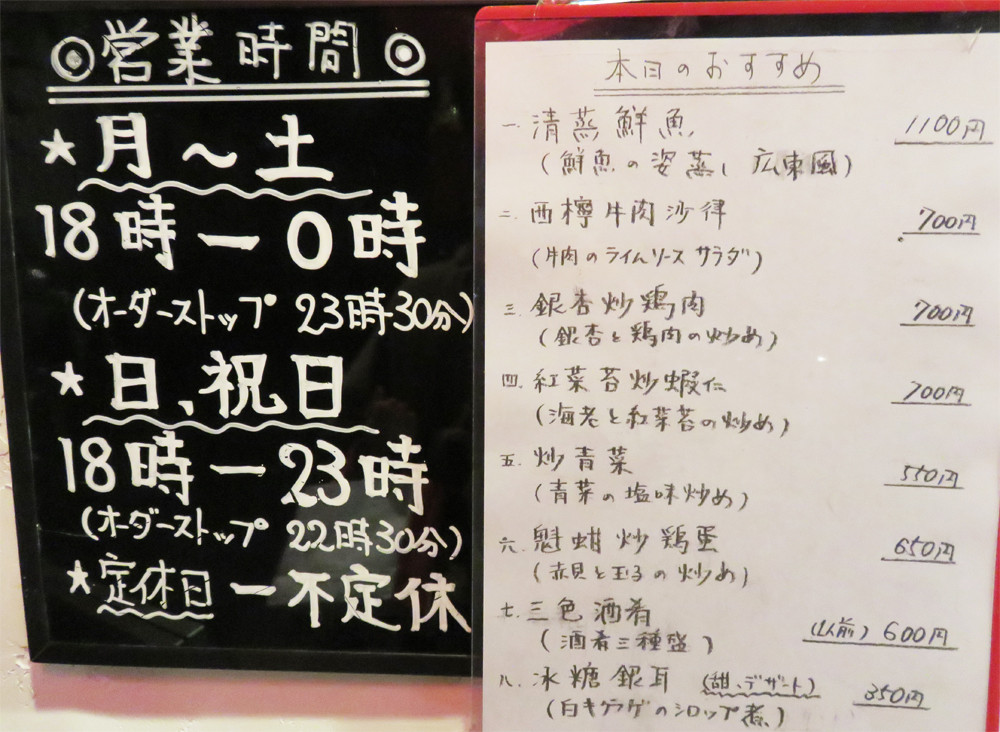 ◎営業時間◎
★月～土
18時ー0時
(オーダーストップ 23時30分)
★日、祝日
18時ー23時
(オーダーストップ 22時30分)
★定休日ー不定休
本日のおすすめ
一. 清蒸鮮魚 1100円
(鮮魚の姿蒸し 広東風)
二. 西檸牛肉沙律 700円
(牛肉のライムソース サラダ)
三. 銀杏炒鶏肉 700円
(銀杏と鶏肉の炒め)
四. 紅菜苔炒蝦仁 700円
(海老と紅菜苔の炒め)
五. 炒青菜 550円
(青菜の塩味炒め)
六. 魁蚶炒鶏蛋 650円
(赤貝と玉子の炒め)
七. 三色酒肴 (1人前) 600円
(酒肴三種盛)
八. 冰糖銀耳 (甜、デザート) 350円
(白キクラゲのシロップ煮)